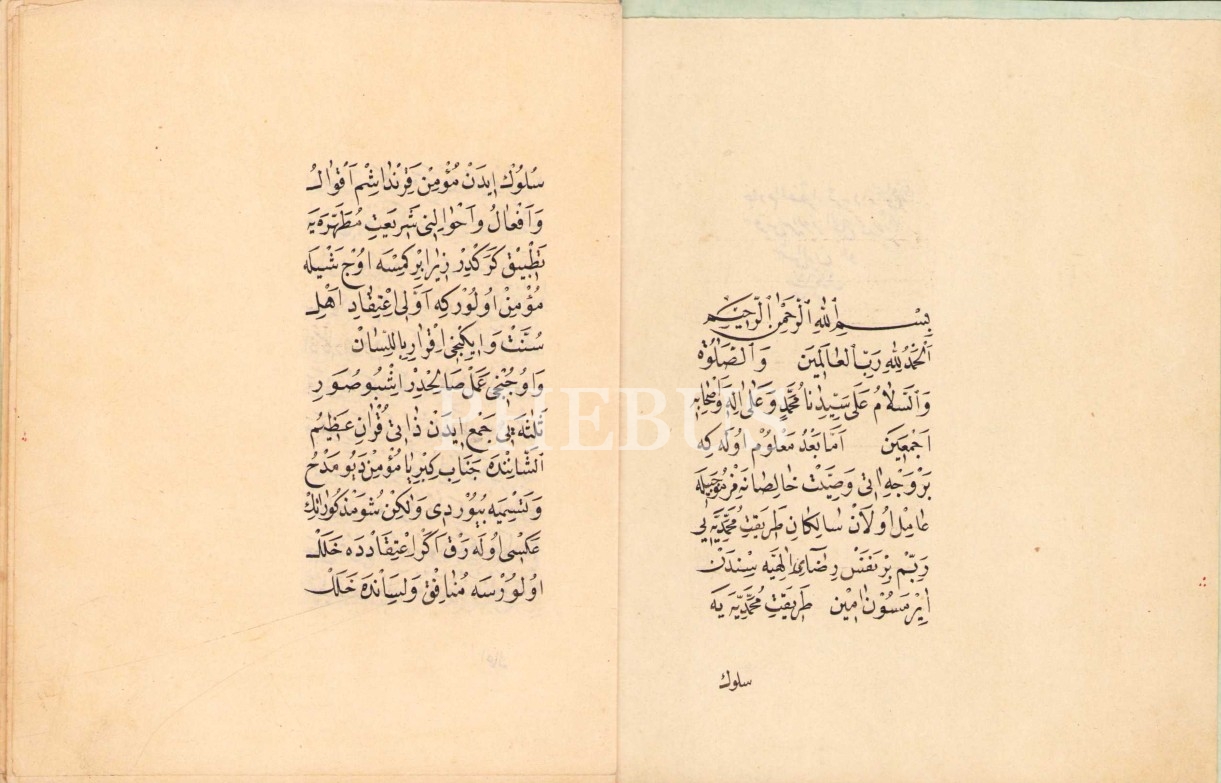 بِسْمِ اللّٰهِ الرَّحْمٰنِ الرَّحِيمِ
اَلْحَمْدُ لِلّٰهِ رَبِّ الْعَالَمِينَ وَالصَّلٰوةُ
وَالسَّلَامُ عَلٰى سَيِّدِنَا مُحَمَّدٍ وَعَلٰى اٰلِهِ وَاَصْحَابِهِ
اَجْمَعِينَ اَمَّا بَعْدُ مَعْلُومْ اُولَه كِه
بَرْ وَجْهِ اٰتِى وَصِيَّتْ خَالِصَانَه
عَامِلْ اُولَانْ سَالِكَانِ طَرِيقَتِ مُحَمَّدِيَّه يِى
رَبِّمْ بِرْ نَفَسْ رِضَاىِ اِلٰهِيَّه سِنْدَنْ
اٰيِرْمَسُونْ اٰمِينْ طَرِيقَتِ مُحَمَّدِيَّه يَه
سلوك
سُلُوكْ اِيدَنْ مُؤْمِنْ قَرِنْدَاشِمْ اَقْوَالْ
وَاَفْعَالْ وَاَحْوَالِنِى شَرِيعَتِ مُطَهَّرَه يَه
تَطْبِيقْ كَرَكْدِرْ زِيرَا بِرْ كِمْسَه اُوجْ شَيْيلَه
مُؤْمِنْ اُولُورْكِه اَوَّلِى اِعْتِقَادِ اَهْلِ
سُنَّتْ وَاِيكِنْجِى اِقْرَارْ بِاللِّسَانْ
وَاُوجُنْجِى عَمَلْ صَالِحْدِرْ اِشْبُو صُوَرِ
ثَلٰثَه يِى جَمْعْ اِيدَنْ ذَاتِى قُرْاٰنِ عَظِيمُ
الشَّانِنْدَه جَنَابِ كِبْرِيَا مُؤْمِنْ دَيُو مَدْحْ
وَتَسْمِيَه بُيُورْدِى وَلٰكِنْ شُو مَذْكُورَاتِكْ
عَكْسِى اُولَه رَقْ اَكَرْ اِعْتِقَادْدَه خَلَلْ
اُولُورْسَه مُنَافِقْ وَلِسَانْدَه خَلَلْ
PHEBUS